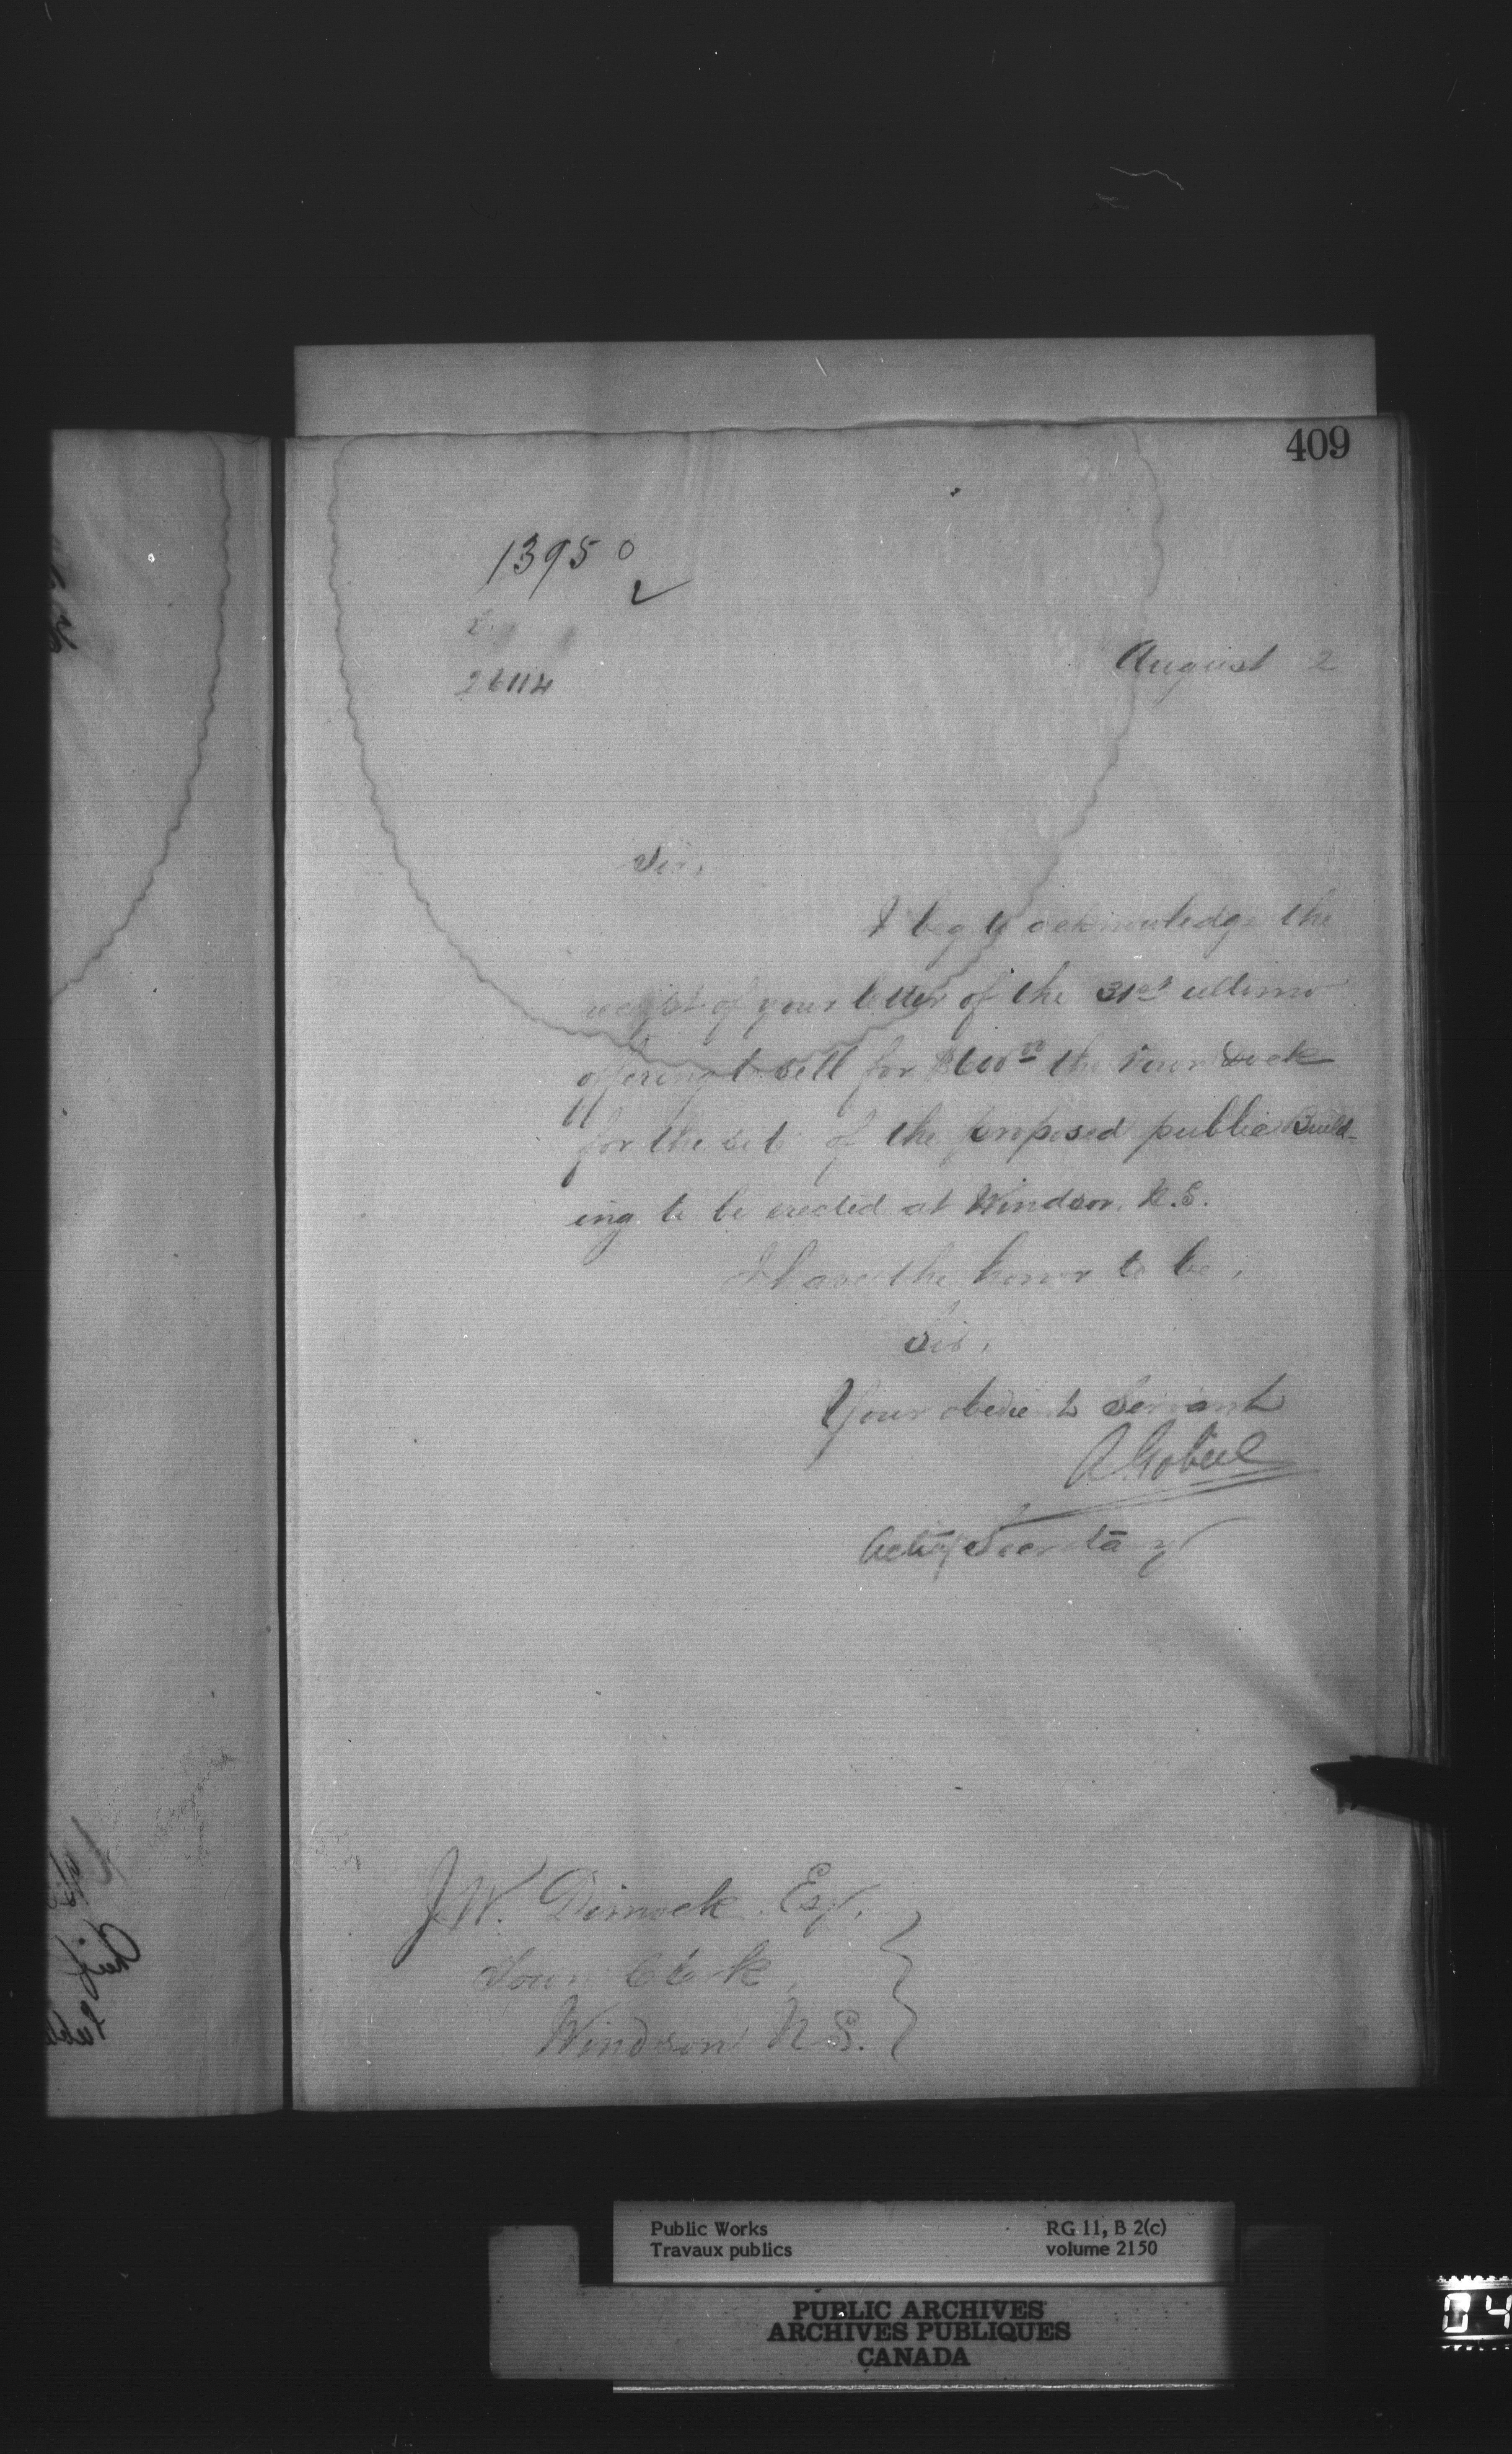 409
13950
26114
August 2
Sir,
I beg to acknowledge the
receipt of your letter of the 31st ultimo
offering to sell for $600.00 the Town Dock
for the site of the proposed public Build-
ing to be erected at Windsor, N.S.
I have the honor to be,
Sir,
Your obedient Servant
A Gobeil
Acting Secretary
J.W. Dimock Esq.
Town Clerk
Windsor N.S.
Public Works
Travaux publics
RG 11, B 2(c)
volume 2150
PUBLIC ARCHIVES
ARCHIVES PUBLIQUES
CANADA
04